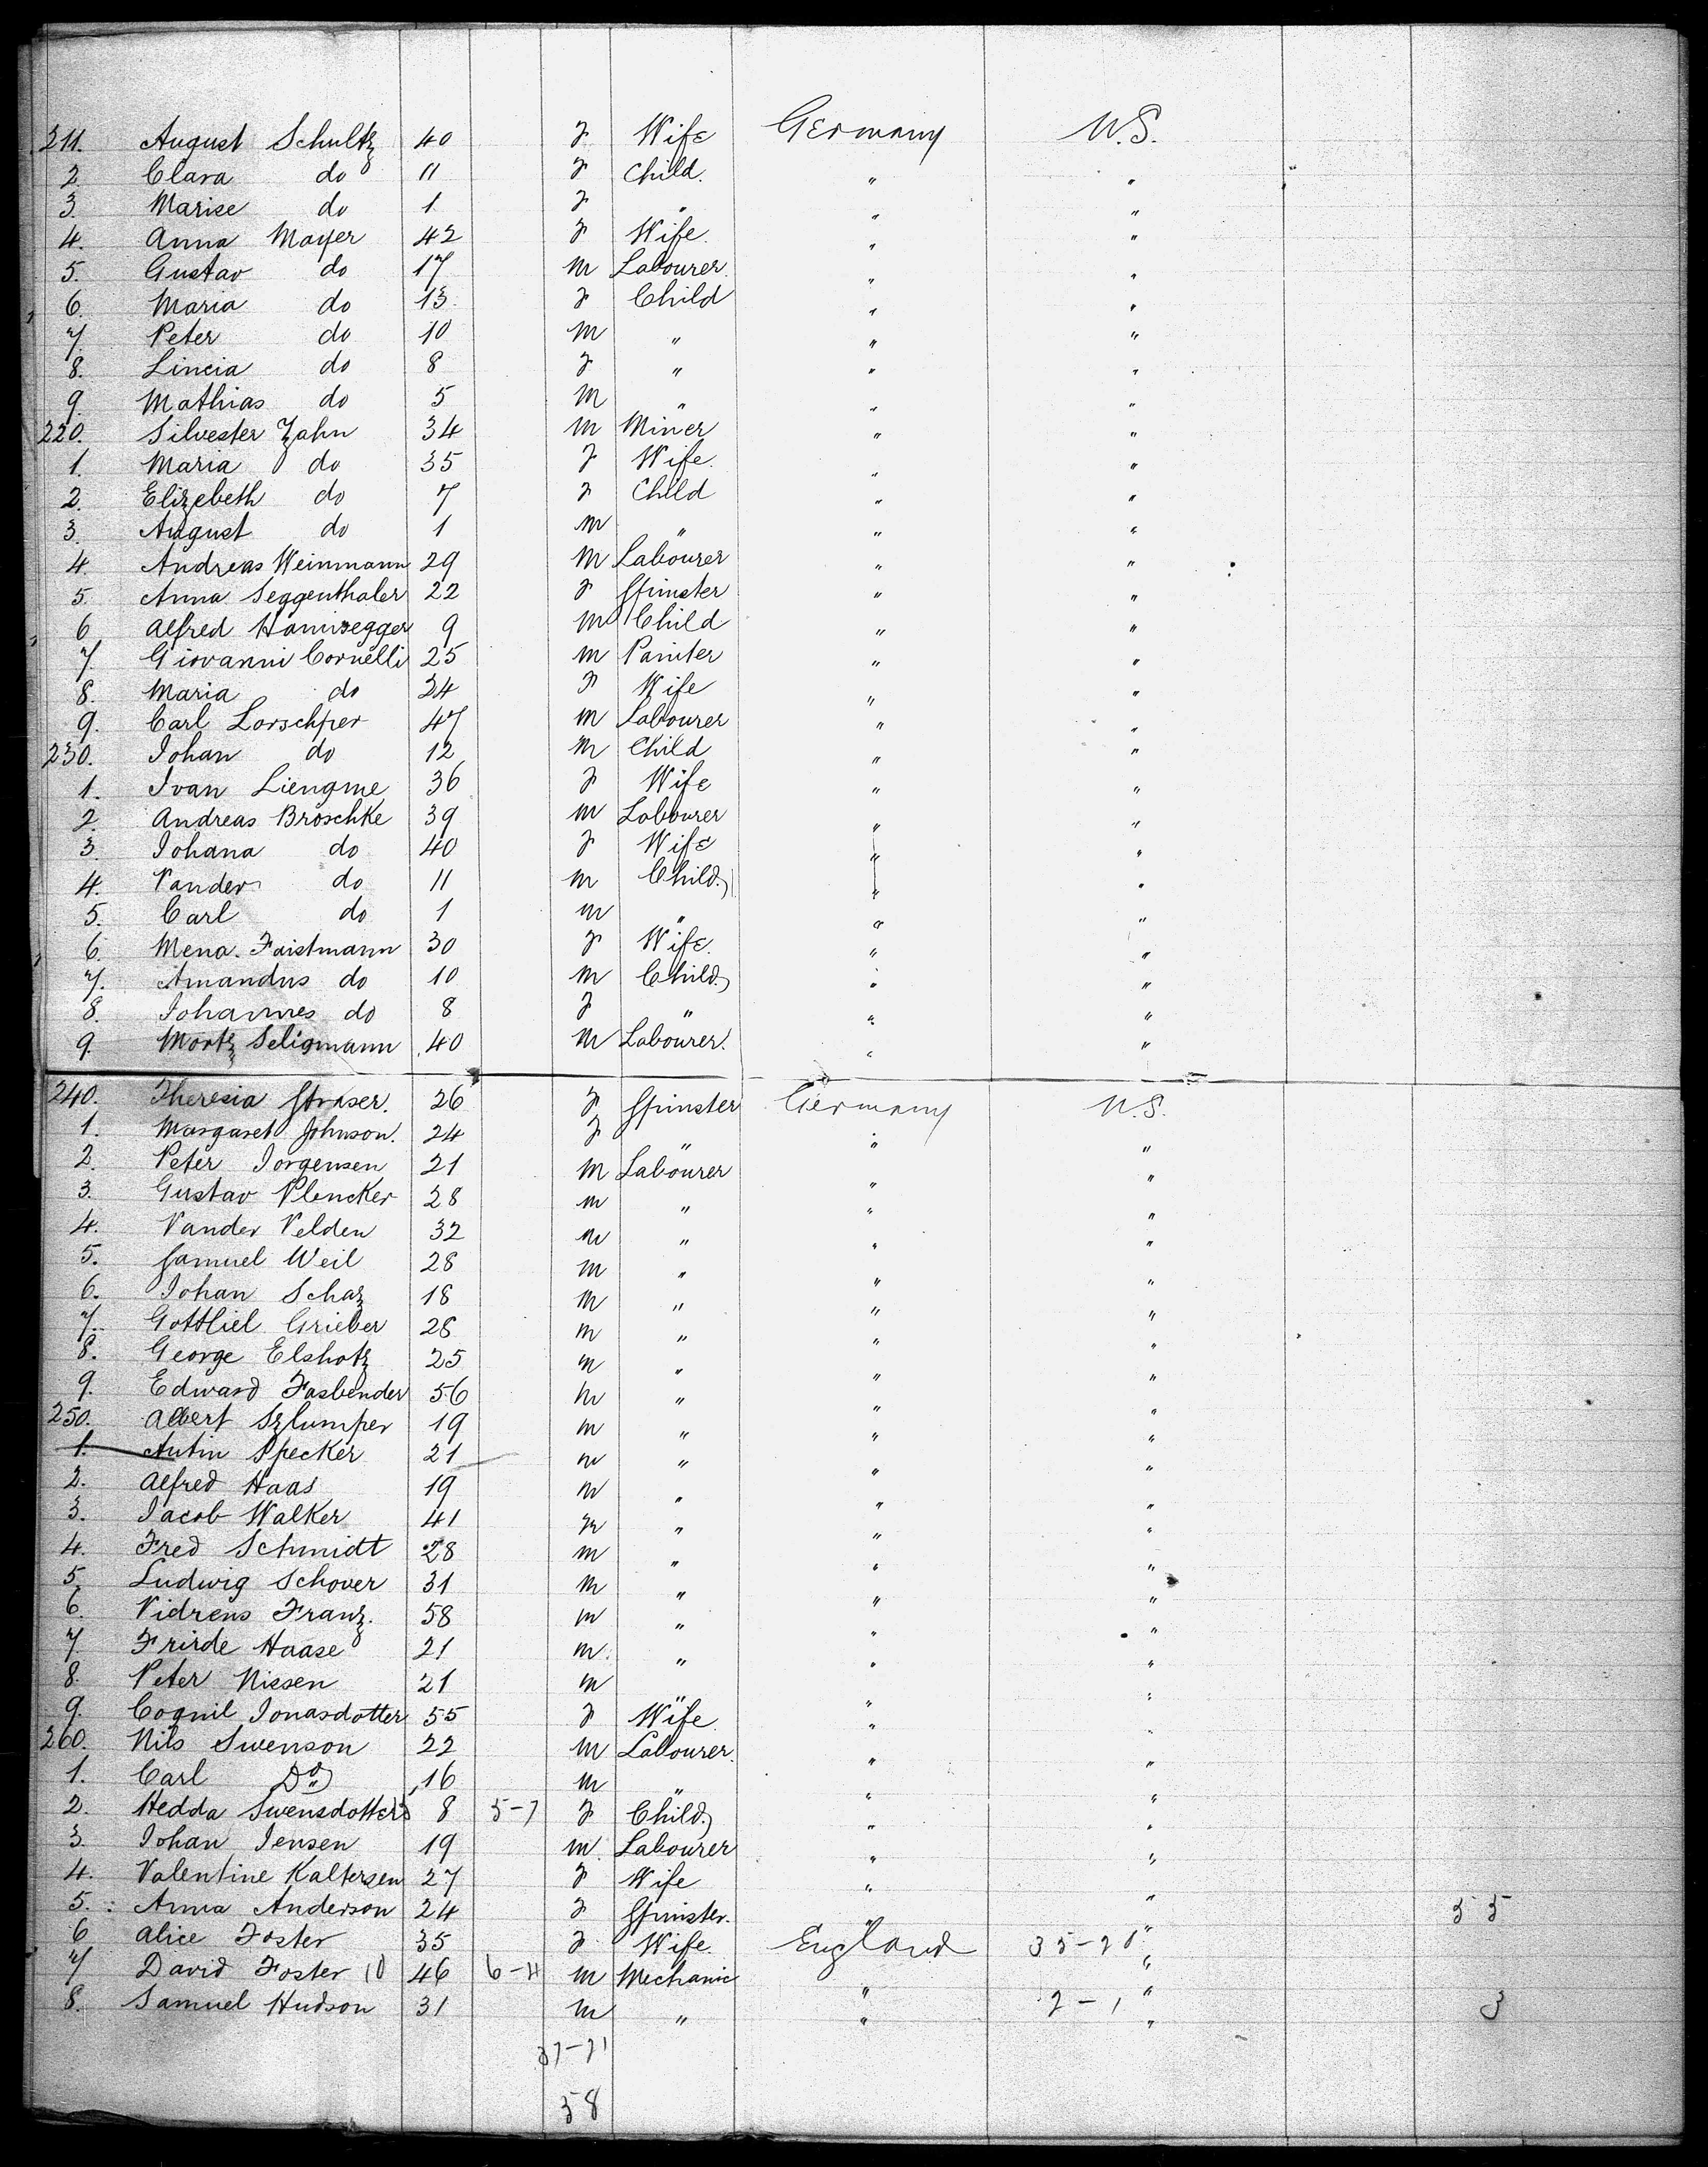 211. August Schultz 40 F Wife Germany U.S.
2. Clara do 11 F Child. " "
3. Marise do 1 F " " "
4. Anna Mayer 42 F Wife. " "
5. Gustav do 17 M Labourer. " "
6. Maria do 13 F Child " "
7. Peter do 10 M " " "
8. Lincia do 8 F " " "
9. Mathias do 5 M " " "
220. Silvester Zahn 34 M Miner " "
1. Maria do 35 F Wife. " "
2. Elizebeth do 7 F Child " "
3. August do 1 M " " "
4. Andreas Weinmann 29 M Labourer " "
5. Anna Seggenthaler 22 F Spinster " "
6 Alfred 9 M Child " "
7. Giovanni Cornelli 25 M Painter " "
8. Maria do 24 F Wife " "
9. Carl Lorschper 47 M Labourer " "
230. Johan do 12 M Child " "
1. Ivan Liengme 36 F Wife " "
2. Andreas Broschke 39 M Labourer " "
3. Johana do 40 F Wife " "
4. Vander do 11 M Child. " "
5. Carl do 1 M " " "
6. Mena. Faistmann 30 F Wife. " "
7. Amandus do 10 M Child. " "
8. Johannes do 8 F " " "
9. Mortz Seligmann 40 M Labourer. " "
240. Theresia Straser. 26 F Spinster Germany U.S.
1. Margaret Johnson. 24 F " " "
2. Peter Jorgensen 21 M Labourer " "
3. Gustav Plencker 28 M " " "
4. Vander Velden 32 M " " "
5. Samuel Weil 28 M " " "
6. Johan Schaz 18 M " " "
7. Gottliel Grieber 28 M " " "
8. George Elshotz 25 M " " "
9. Edward Fasbender 56 M " " "
250. Albert Szlumper 19 M " " "
1. Antin Specker 21 M " " "
2. Alfred Haas 19 M " " "
3. Jacob Walker 41 M " " "
4. Fred Schmidt 28 M " " "
5. Ludwig Schover 31 M " " "
6. Vidrens Franz. 58 M " " "
7. Frirde Haase 21 M. " " "
8. Peter Nissen 21 M " " "
9. Cognil Jonasdotter 55 F Wife " "
260. Nils Swenson 22 M Labourer. " "
1. Carl Do 16 M " " "
2. Hedda Swensdotter 8 5-7 F Child. " "
3. Johan Jensen 19 M. Labourer " "
4. Valentine Kaltersen 27 F Wife " "
5. Anna Anderson 24 F Spinster. " " 35
6 Alice Foster 35 F Wife. England 35-20 "
7 David Foster 10 46 6-11 M Mechanic " "
8. Samuel Hudson 31 M " " 2-1 " 3
37-21
58